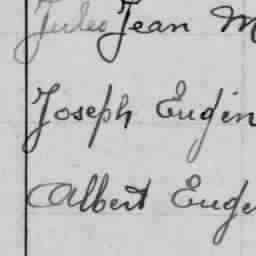 Jules Jean M
Joseph Eugèn
Albert Euge